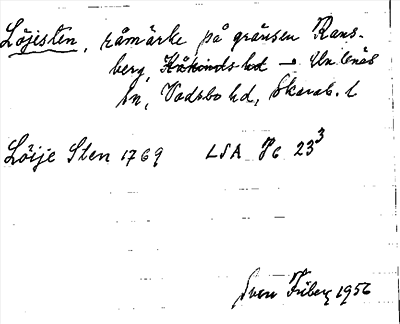 Löjisten, råmärke på gränsen Rans-
berg, Kåkinds hd – Undenäs
sn, Vadsbo hd, Skarab. l
Löije Sten 1769 LSA P6 23³
Sven Friberg 1956